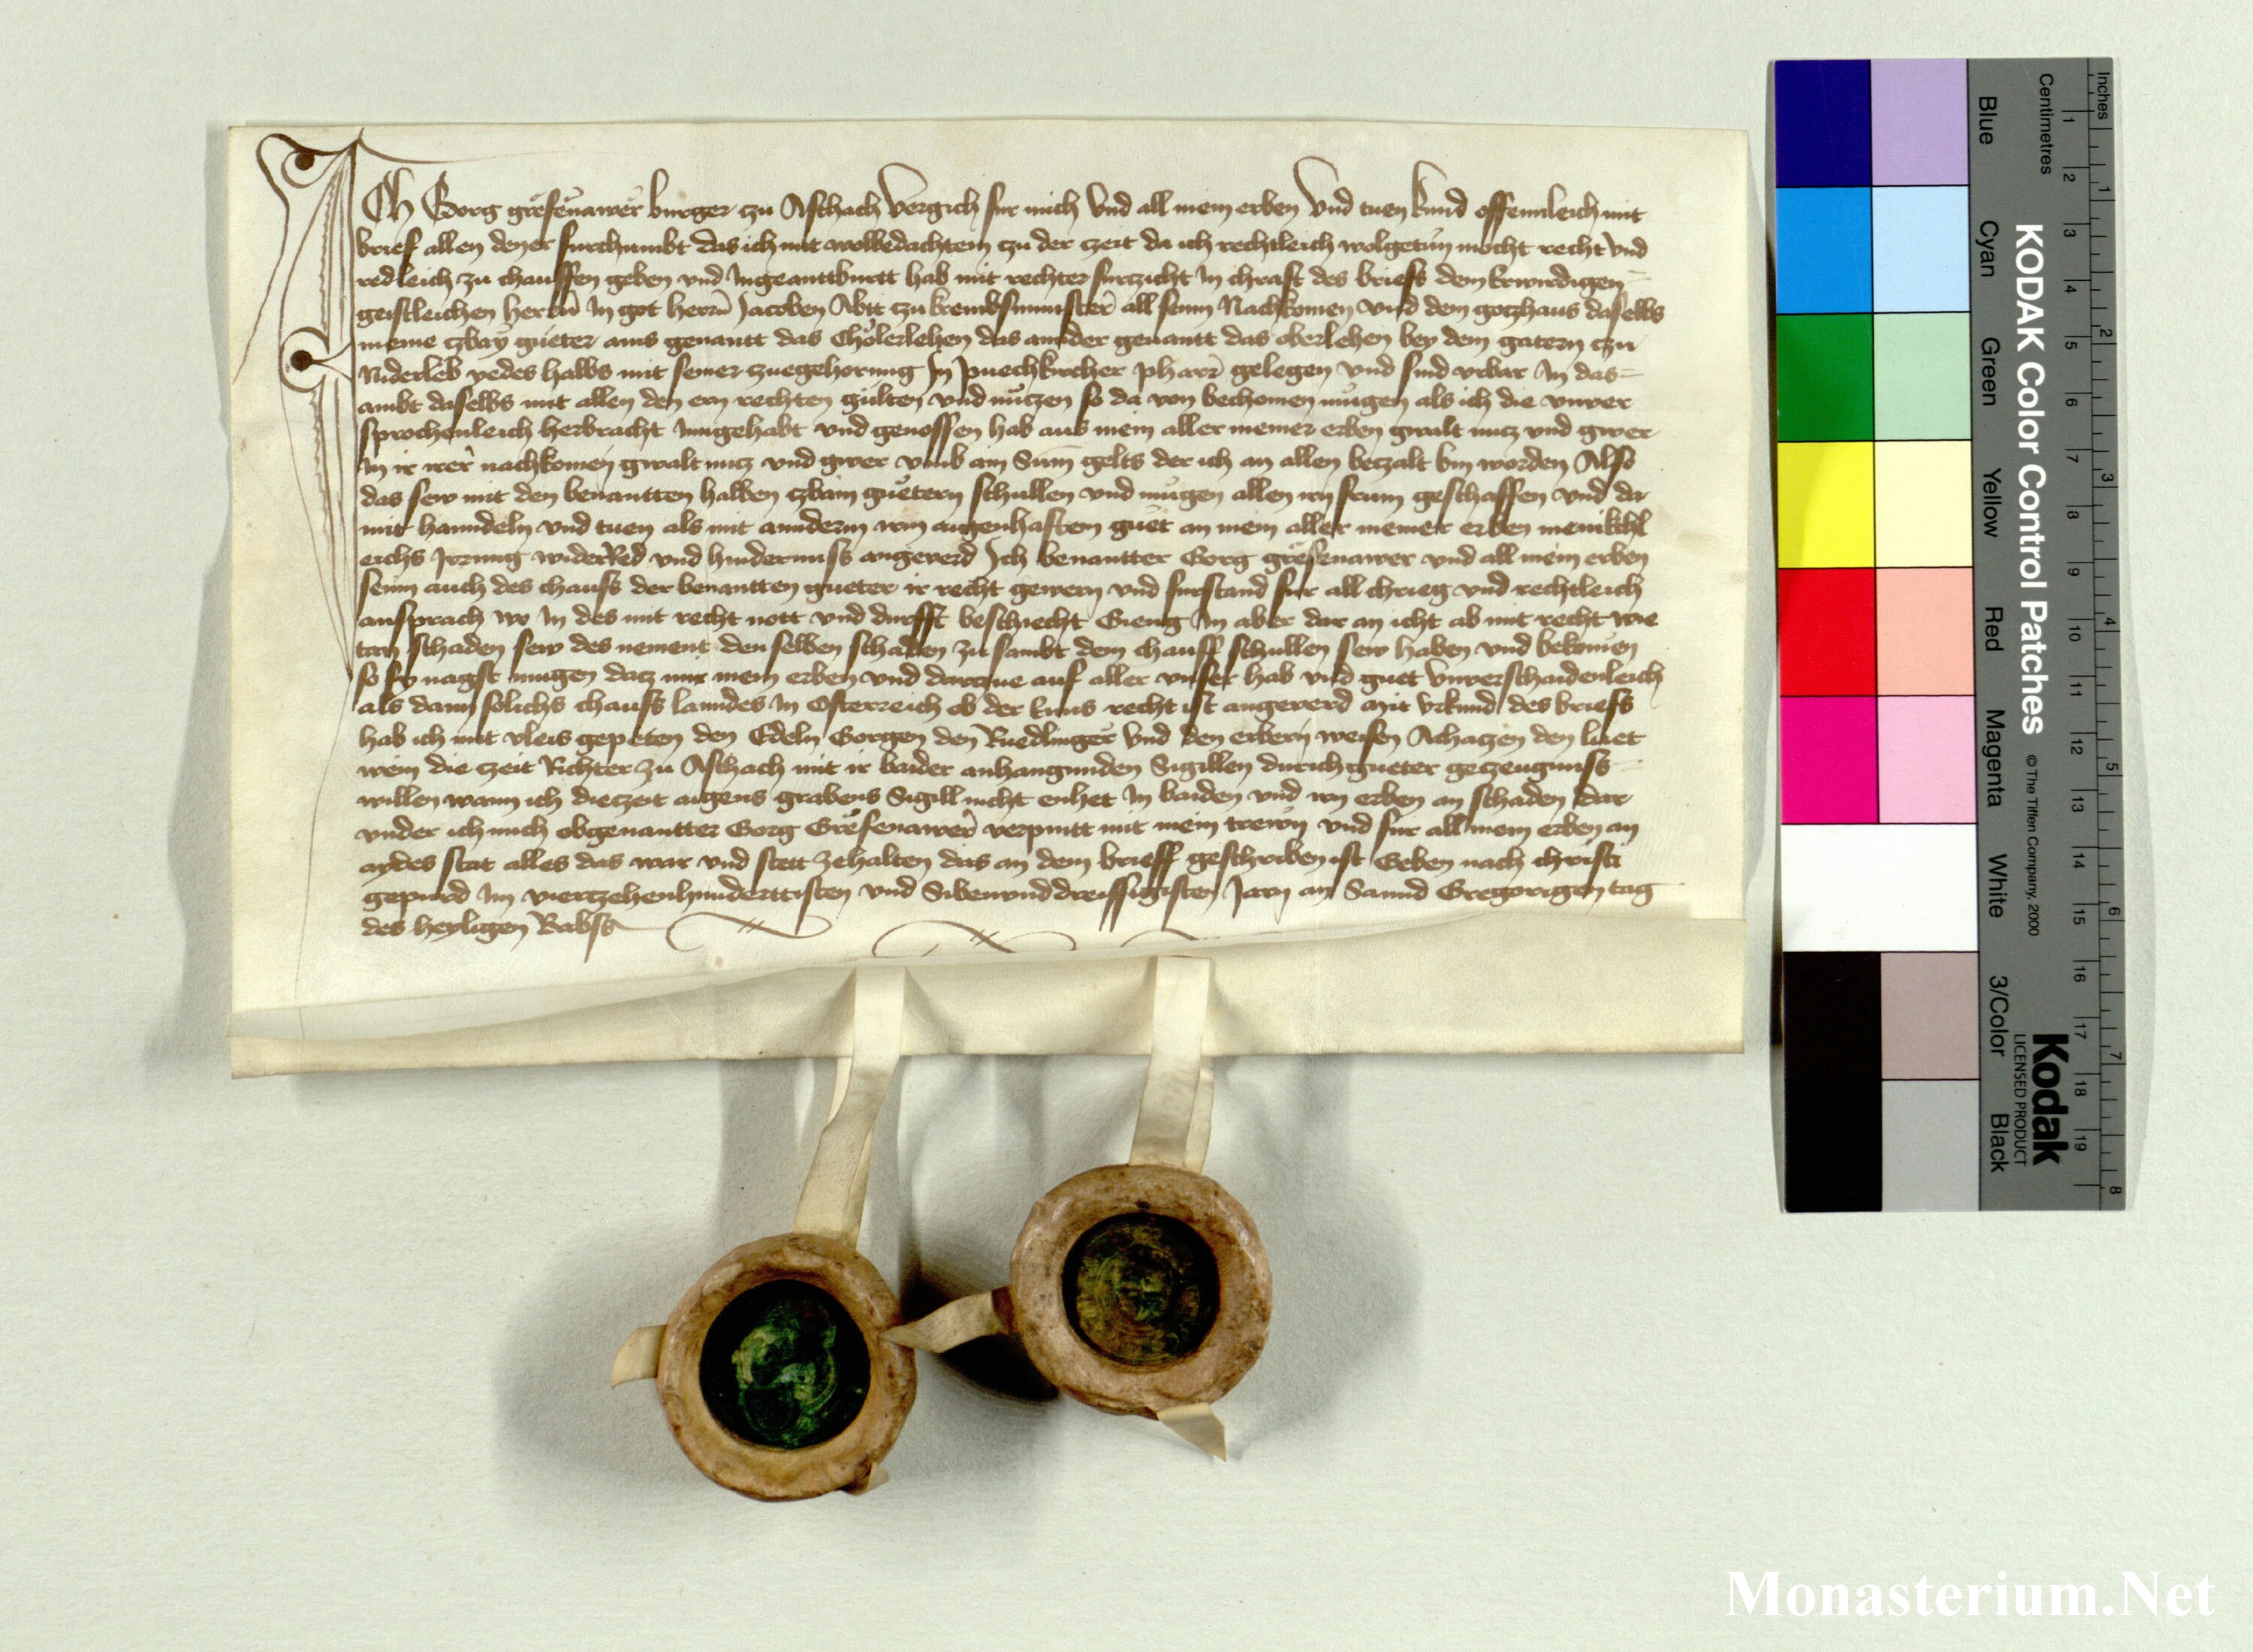 ICh Gorg gresenawer burger zu Aschach Vergich fur mich Vnd all mein erben Vnd tuen kund offennleich mit
brief allen den er furchumbt das ich mit wolbedachtem czu der czeit da ich rechtleich wolgetun mocht recht vnd
redleich zu chauffen geben vnd Ingeanttburtt hab mit rechter furczicht In chraft des briefs dem Erwirdigen
geistleichen herrn In got herrn Jacoben Abtt czu krembsmunster all seinn Nachkomen vnd dem gotzhaus daselbs
meine czbay gueter ains genantt das Cholerlehen das annder genantt das oberlehen bey dem gatern czu
Niderleb yedes halbs mit seiner zuegehorung In puechkircher pharr gelegen vnd sind vrbar In das
ambt daselbs mit allen den ern rechten gulten vnd nutzen so da von bechomen mugen als ich die vnver
sprochenleich herbracht Inngehabt vnd genossen hab aus mein aller meiner erben gwalt nutz vnd gwer
In ir irer nachkomen gwalt nutz vnd gwer vmb ain Sum gelts der ich an allen betzalt bin worden Also
das sew mit den benantten halben czbain guetern schullen vnd mugen allen irn frum geschaffen vnd da
mit hanndeln vnd tuen als mit annderm irm aigenhaftem guet an mein aller meiner erben menikchl
eichs Irrung widerRed vnd hindernuss angeverd Ich benantter Gorg gresenawer vnd all mein erben
seinn auch des chaufs der benantten gueter ir recht gewern vnd furstand fur all chrieg vnd rechtleich
ansprach wo In des mit recht nott vnd durfft beschiecht Gieng In aber dar an icht ab mit recht wie
tan schaden sew des nement den selben schaden zu sambt dem chauff schullen sew haben vnd bekomen
so sy nagst mugen datz mir mein erben vnd dartzue auf aller vnser hab vnd guet Vnverschaidenleich
als dann solichs chaufs lanndes In Osterreich ob der Enns recht ist angeverd Mit Vrkund des briefs
hab ich mit vleis gepeten den Edeln Gorgen den Ruedlinger Vnd den erbern weisen Achatzen den liet
wein die czeit Richter zu Aschach mit ir baider anhangunden Sigillen durich gueter getzeugnuss
willen wann ich die czeit aigens grabens Sigill nicht enhet In baiden vnd irn erben an schaden dar
vnder ich mich obgenantter Gorg Gresenawer verpintt mit mein trewn vnd fur all mein erben an
aydes stat alles das war vnd stett zehalten das an dem brieff geschriben ist Geben nach christi
gepurd Im viertzehenhunderttisten vnd Sibenvnddreissigisten Jarn an Sannd Gregorigen tag
des heyligen Babst
KODAK Color Control Patches © The Tiffen Company, 2000 Kodak LICENSED PRODUCT
Blue Cyan Green Yellow Red Magenta White 3/Color Black
Centimetres 1 2 3 4 5 6 7 8 9 10 11 12 13 14 15 16 17 18 19
Inches 1 2 3 4 5 6 7 8
Monasterium.Net